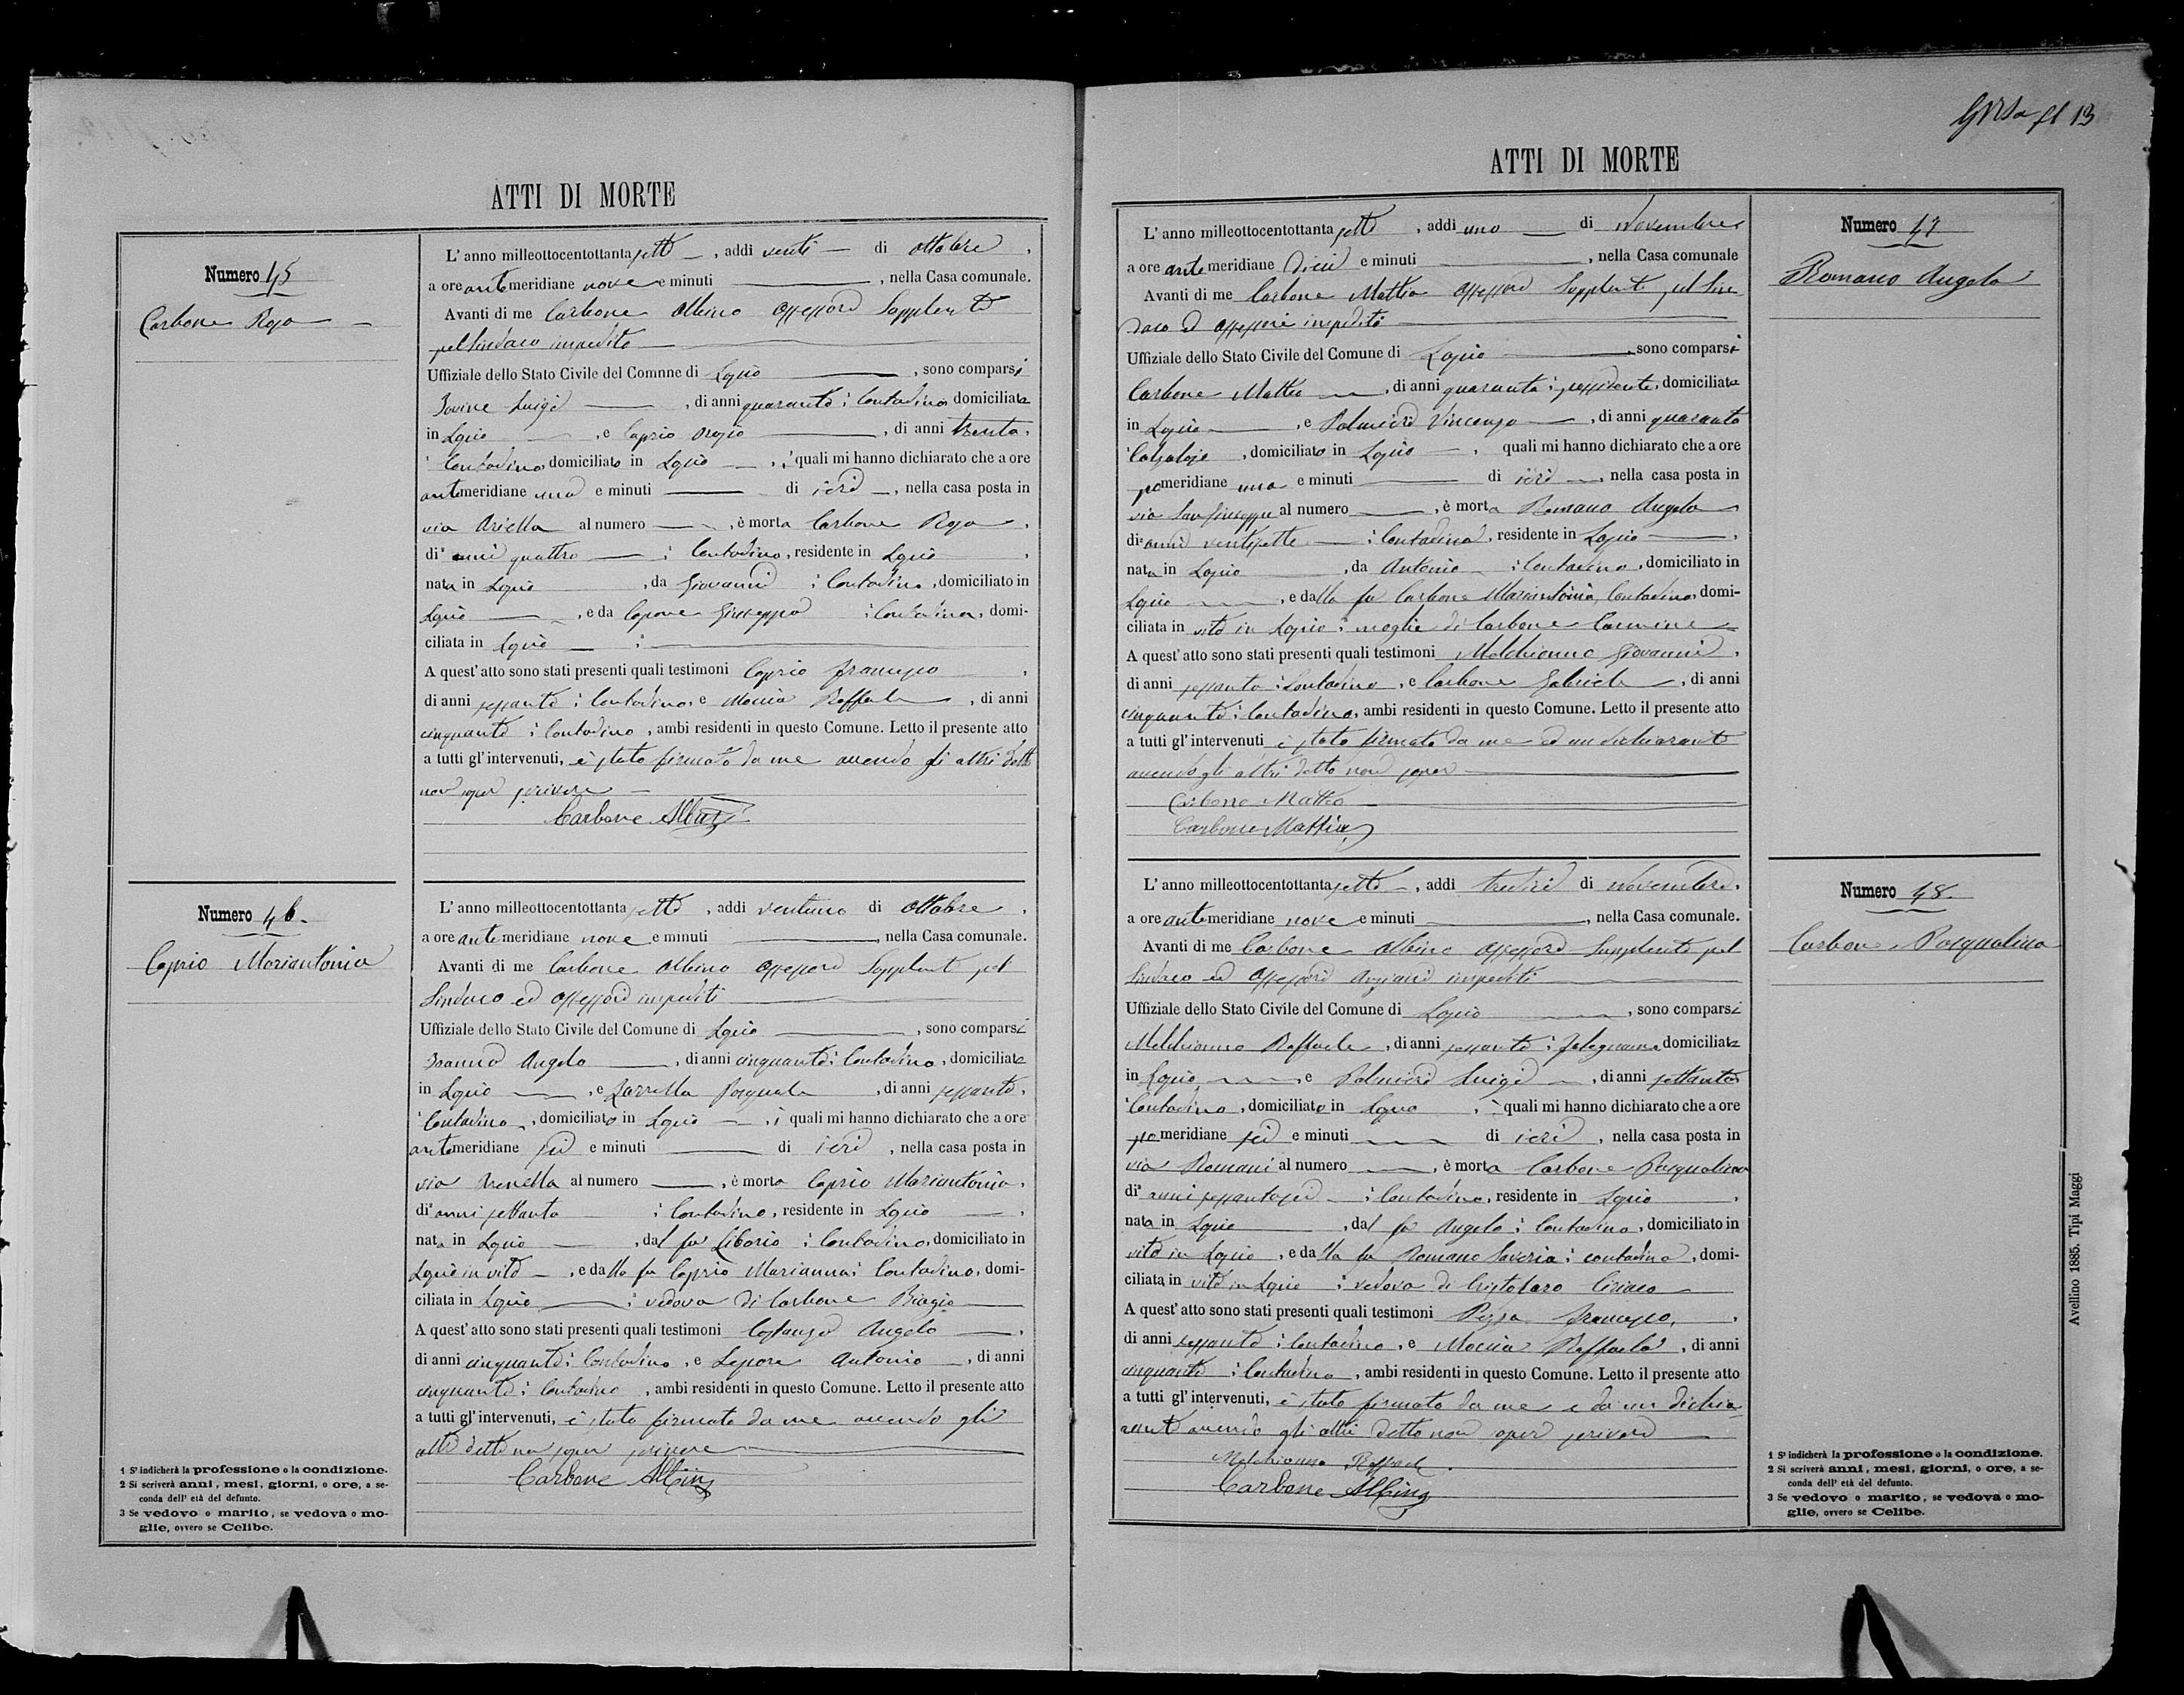 ATTI DI MORTE
Numero 45
Carbone Rosa
L' anno milleottocentottanta sette, addì venti di ottobre,
a ore antemeridiane nove e minuti, nella Casa comunale.
Avanti di me Carbone Albino Assessore Supplente
pel Sindaco impedito
Uffiziale dello Stato Civile del Comnne di Lapio, sono comparsi
Iovine Luigi, di anni quaranta; Contadino domiciliato
in Lapio, e Caprio Orazio, di anni trenta,
Contadino domiciliato in Lapio, i quali mi hanno dichiarato che a ore
antemeridiane una e minuti di ieri, nella casa posta in
via Ariella al numero, è morta Carbone Rosa,
di anni quattro; Contadina, residente in Lapio,
nata in Lapio, da Giovanni; Contadino, domiciliato in
Lapio, e da Capone Giuseppa; Contadina, domi-
ciliata in Lapio
A quest' atto sono stati presenti quali testimoni Caprio Francesco,
di anni sessanta; Contadino, e Moccia Raffaele, di anni
cinquanta; Contadino, ambi residenti in questo Comune. Letto il presente atto
a tutti gl' intervenuti, è stato firmato da me avendo gli altri detto
non saper scrivere
Carbone Albino
Numero 46.
Caprio Mariantonia
L' anno milleottocentottanta sette, addì ventuno di ottobre,
a ore antemeridiane nove e minuti, nella Casa comunale.
Avanti di me Carbone Albino Assessore Supplente pel
Sindaco ed Assessori impediti
Uffiziale dello Stato Civile del Comune di Lapio, sono comparsi
Angelo, di anni cinquanta; Contadino, domiciliato
in Lapio, e Zarrella Pasquale, di anni sessanta,
Contadino, domiciliato in Lapio, i quali mi hanno dichiarato che a ore
antemeridiane sei e minuti di ieri, nella casa posta in
via al numero, è morta Caprio Mariantonia,
di anni settanta; Contadina, residente in Lapio,
nata in Lapio, dal fu Liborio; Contadino, domiciliato in
Lapio in vita, e dalla fu Caprio Marianna; Contadina, domi-
ciliata in Lapio; vedova di Carbone Biagio
A quest' atto sono stati presenti quali testimoni Costanzo Angelo,
di anni cinquanta; Contadino, e Lepore Antonio, di anni
cinquanta; Contadino, ambi residenti in questo Comune. Letto il presente atto
a tutti gl' intervenuti, è stato firmato da me avendo gli
altri detto non saper scrivere
Carbone Albino
1 S' indicherà la professione o la condizione.
2 Si scriverà anni, mesi, giorni, o ore, a se-
conda dell' età del defunto.
3 Se vedovo o marito, se vedova o mo-
glie, ovvero se Celibe.
13
ATTI DI MORTE
Numero 47
Romano Angela
L' anno milleottocentottanta sette, addì uno di Novembre
a ore antemeridiane dieci e minuti, nella Casa comunale
Avanti di me Carbone Mattia Assessore Supplente pel Sin
daco ed Assessori impediti
Uffiziale dello Stato Civile del Comune di Lapio, sono comparsi
Carbone Matteo, di anni quaranta; possidente, domiciliato
in Lapio, e Palmieri Vincenzo, di anni quaranta
Calzolaio, domiciliato in Lapio, quali mi hanno dichiarato che a ore
pomeridiane una e minuti di ieri, nella casa posta in
via San Giuseppe al numero, è morta Romano Angela
di anni ventisette; Contadina, residente in Lapio,
nata in Lapio, da Antonio; Contadino, domiciliato in
Lapio, e dalla fu Carbone Mariantonia, Contadina, domi-
ciliata in vita in Lapio; moglie di Carbone Carmine
A quest' atto sono stati presenti quali testimoni Melchionno Giovanni,
di anni sessanta; Contadino, e Carbone Gabriele, di anni
cinquanta; Contadino, ambi residenti in questo Comune. Letto il presente atto
a tutti gl' intervenuti è stato firmato da me ed un dichiarante
avendo gli altri detto non saper
Carbone Matteo
Carbone Mattia
Numero 48.
Carbone Pasqualina
L' anno milleottocentottanta sette, addì tredici di novembre,
a ore antemeridiane nove e minuti, nella Casa comunale.
Avanti di me Carbone Albino Assessore Supplente pel
Sindaco ed Assessori Anziani impediti
Uffiziale dello Stato Civile del Comune di Lapio, sono comparsi
Melchionno Raffaele, di anni sessanta; falegname domiciliato
in Lapio, e Palmieri Luigi, di anni settanta
Contadino, domiciliato in Lapio, i quali mi hanno dichiarato che a ore
pomeridiane sei e minuti di ieri, nella casa posta in
via Romani al numero, è morta Carbone Pasqualina
di anni sessantasei; Contadina, residente in Lapio,
nata in Lapio, dal fu Angelo; Contadino, domiciliato in
vita in Lapio, e dalla fu Romano Saveria; contadina, domi-
ciliata in vita in Lapio; vedova di Cristofaro Ciriaco
A quest' atto sono stati presenti quali testimoni Pizza Francesco,
di anni sessanta; Contadino, e Moccia Raffaele, di anni
cinquanta; Contadino, ambi residenti in questo Comune. Letto il presente atto
a tutti gl' intervenuti, è stato firmato da me e da un dichia
rante avendo gli altri detto non saper scrivere
Melchionno Raffaele
Carbone Albino
1 S' indicherà la professione o la condizione.
2 Si scriverà anni, mesi, giorni, o ore, a se-
conda dell' età del defunto.
3 Se vedovo o marito, se vedova o mo-
glie, ovvero se Celibe.
Avellino 1885. Tipi Maggi